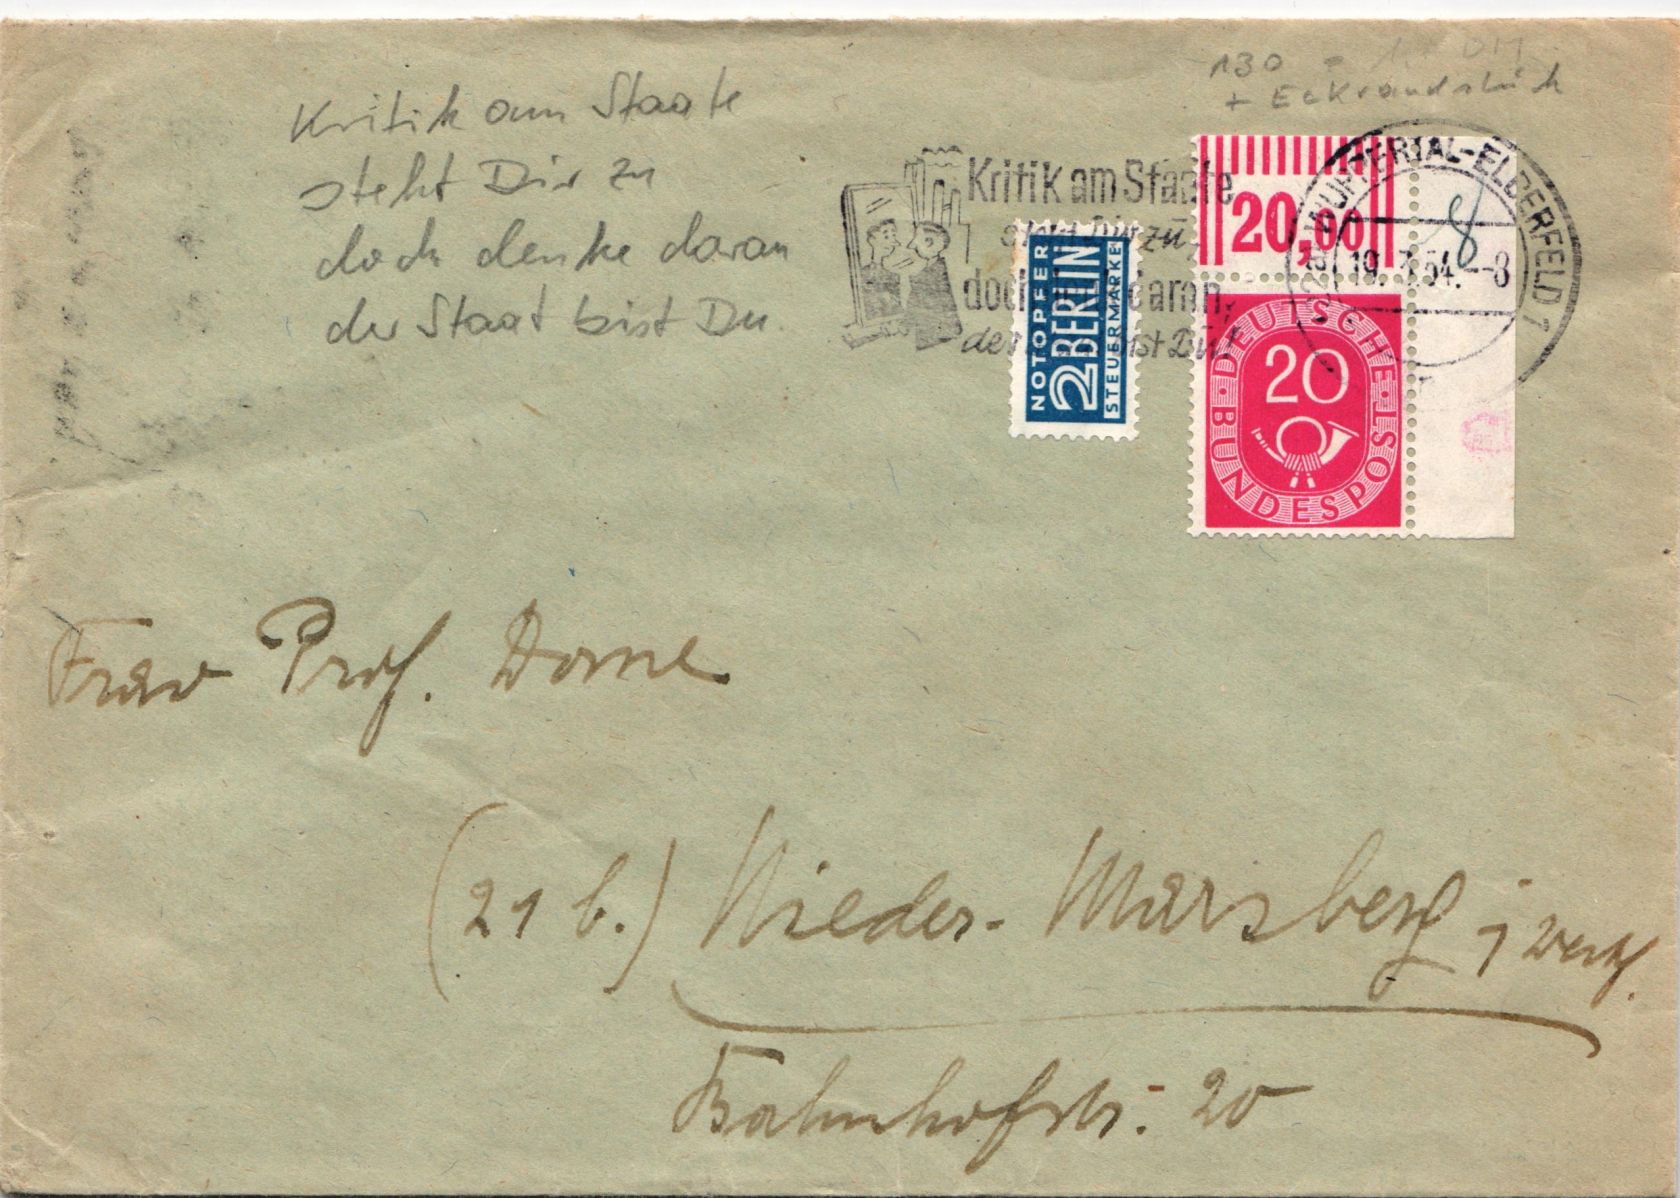 130 -
+ Eckrandstück
Kritik am Staate
steht Dir zu
doch denke daran
der Staat bist Du.
Kritik am Staate
Dir zu,
daran,
WUPPERTAL-ELBERFELD 1
19. 7. 54. -8
8
20,00
NOTOPFER
2 BERLIN
STEUERMARKE
20
DEUTSCHE BUNDESPOST
Frau Prof. Dome
(21 b.) Nieder-Marsberg i Westf.
Bahnhofstr. 20